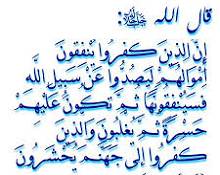 قال الله ﷻ:
إِنَّ الَّذِينَ كَفَرُوا يُنْفِقُونَ
أَمْوَالَهُمْ لِيَصُدُّوا عَنْ سَبِيلِ اللَّهِ
فَسَيُنْفِقُونَهَا ثُمَّ تَكُونُ عَلَيْهِمْ
حَسْرَةً ثُمَّ يُغْلَبُونَ وَالَّذِينَ
كَفَرُوا إِلَى جَهَنَّمَ يُحْشَرُونَ